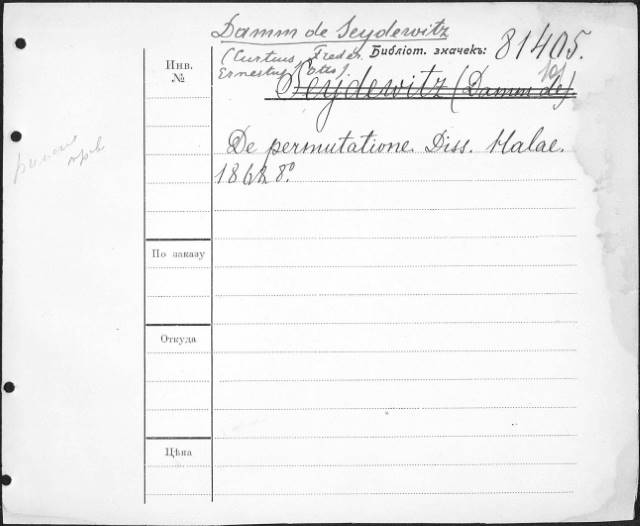 Damm de Seydewitz
(Curtius Freder.
Ernestus Otto).
Библіот. значекъ: 81405.
Инв.
№
Seydewitz (Damm de).
De permutatione. Diss. Halae.
186 8º.
По заказу
Откуда
Цѣна